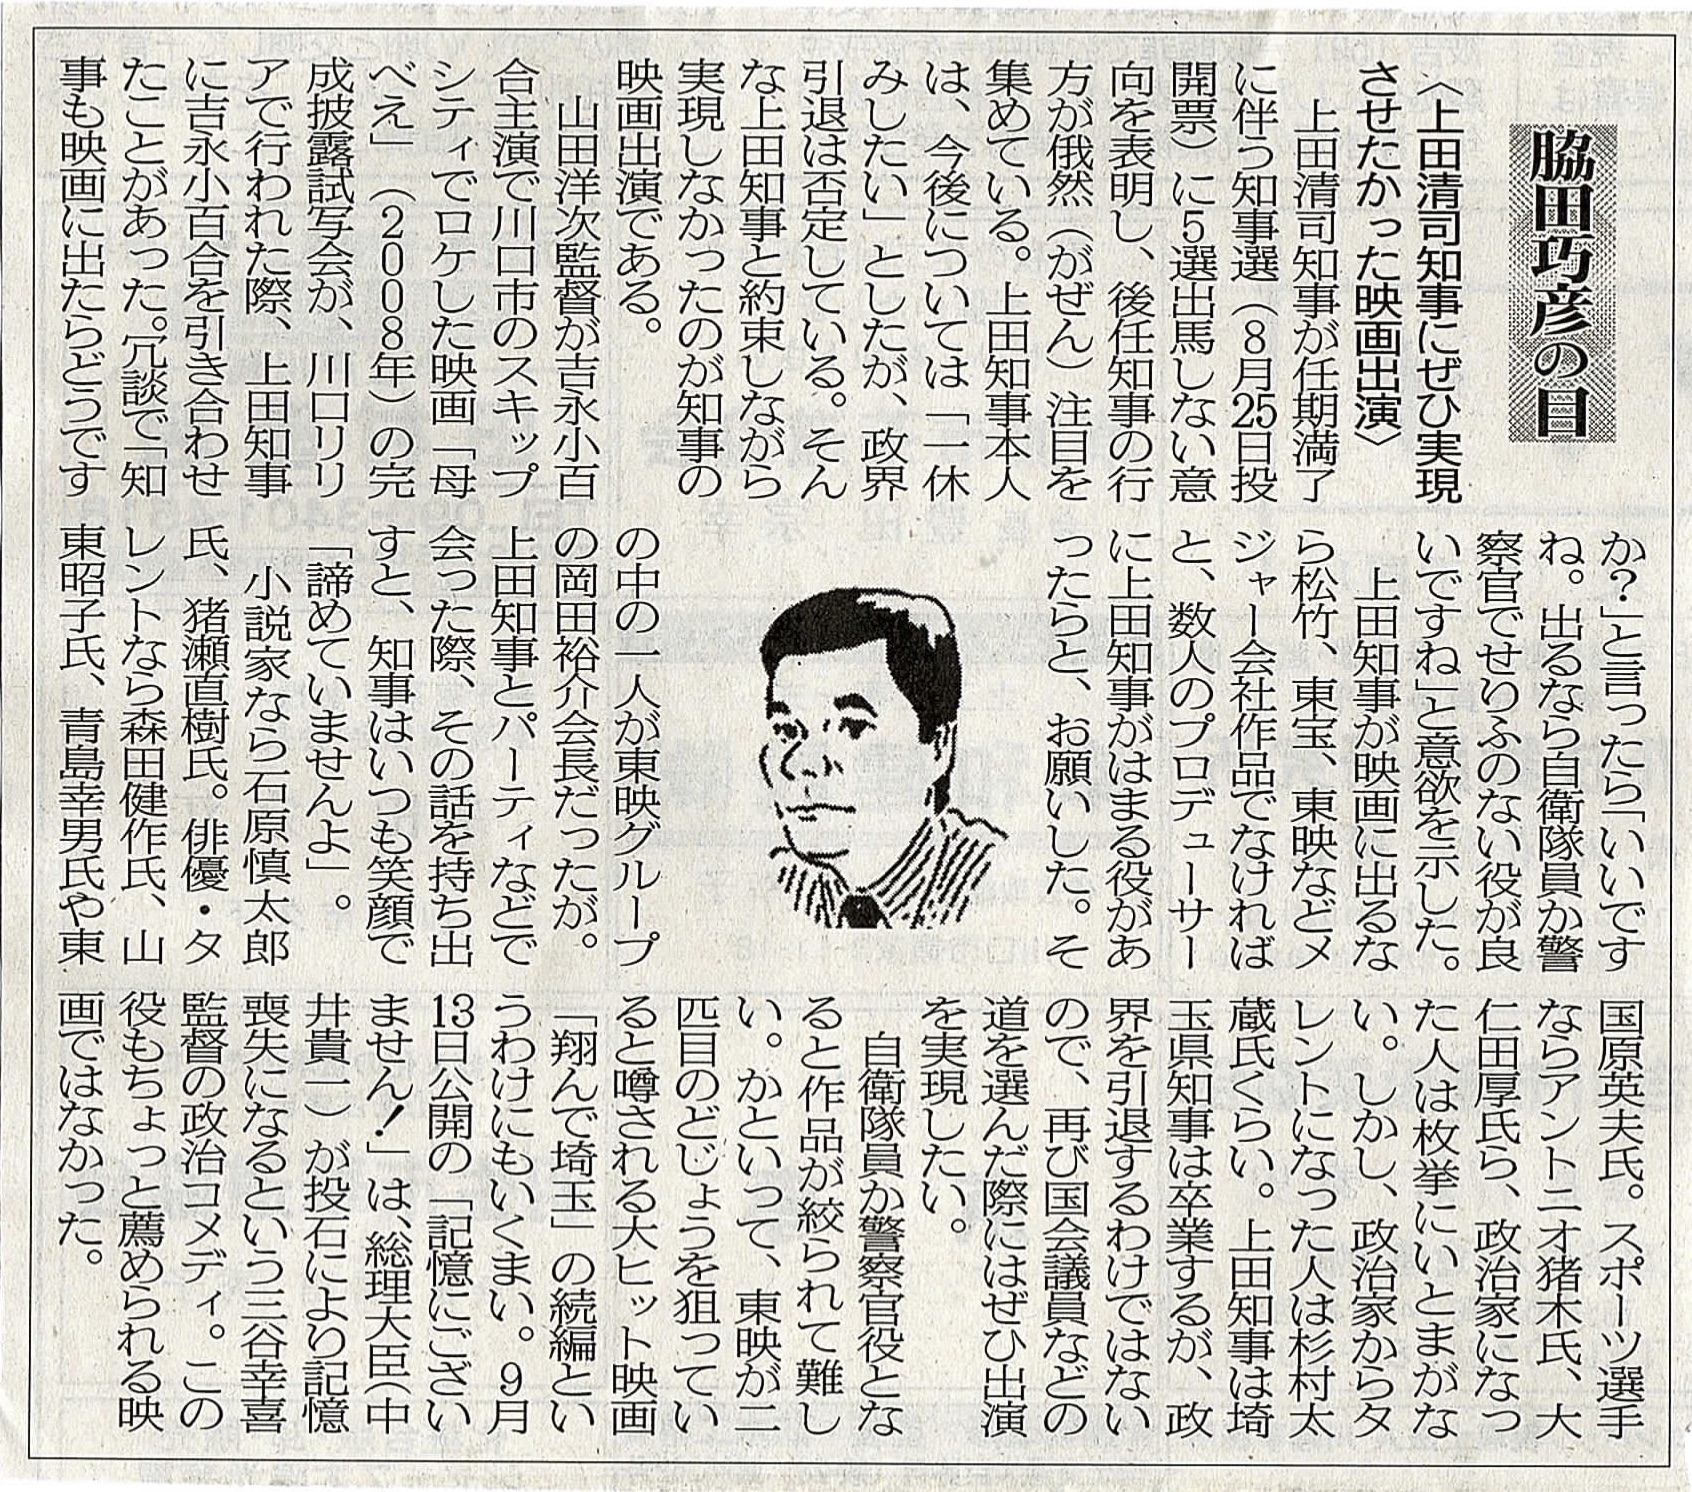 脇田巧彦の目
〈上田清司知事にぜひ実現
させたかった映画出演〉
上田清司知事が任期満了
に伴う知事選（8月25日投
開票）に5選出馬しない意
向を表明し、後任知事の行
方が俄然（がぜん）注目を
集めている。上田知事本人
は、今後については「一休
みしたい」としたが、政界
引退は否定している。そん
な上田知事と約束しながら
実現しなかったのが知事の
映画出演である。
山田洋次監督が吉永小百
合主演で川口市のスキップ
シティでロケした映画「母
べえ」（2008年）の完
成披露試写会が、川口リリ
アで行われた際、上田知事
に吉永小百合を引き合わせ
たことがあった。冗談で「知
事も映画に出たらどうです
か？」と言ったら「いいです
ね。出るなら自衛隊員か警
察官でせりふのない役が良
いですね」と意欲を示した。
上田知事が映画に出るな
ら松竹、東宝、東映などメ
ジャー会社作品でなければ
と、数人のプロデューサー
に上田知事がはまる役があ
ったらと、お願いした。そ
の中の一人が東映グループ
の岡田裕介会長だったが。
上田知事とパーティなどで
会った際、その話を持ち出
すと、知事はいつも笑顔で
「諦めていませんよ」。
小説家なら石原慎太郎
氏、猪瀬直樹氏。俳優・タ
レントなら森田健作氏、山
東昭子氏、青島幸男氏や東
国原英夫氏。スポーツ選手
ならアントニオ猪木氏、大
仁田厚氏ら、政治家になっ
た人は枚挙にいとまがな
い。しかし、政治家からタ
レントになった人は杉村太
蔵氏くらい。上田知事は埼
玉県知事は卒業するが、政
界を引退するわけではない
ので、再び国会議員などの
道を選んだ際にはぜひ出演
を実現したい。
自衛隊員か警察官役とな
ると作品が絞られて難し
い。かといって、東映が二
匹目のどじょうを狙ってい
ると噂される大ヒット映画
「翔んで埼玉」の続編とい
うわけにもいくまい。9月
13日公開の「記憶にござい
ません！」は、総理大臣（中
井貴一）が投石により記憶
喪失になるという三谷幸喜
監督の政治コメディ。この
役もちょっと薦められる映
画ではなかった。